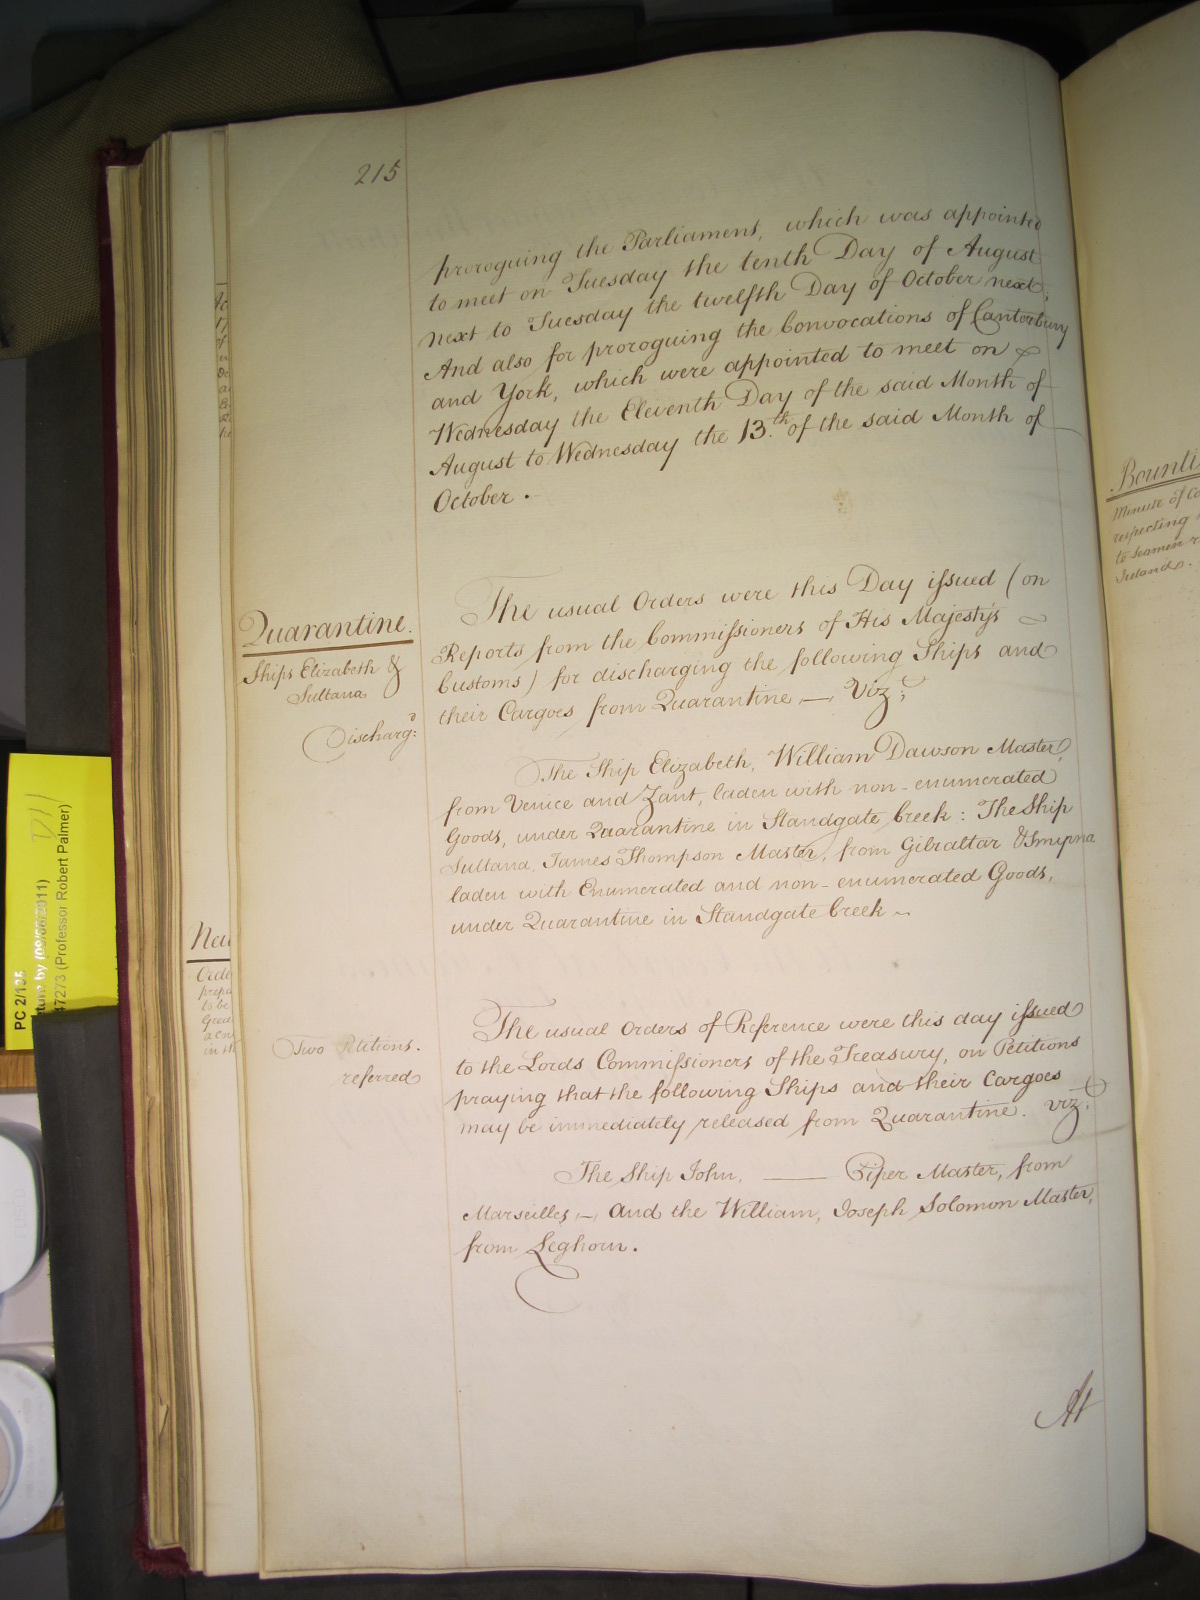 215
proroguing the Parliament, which was appointed
to meet on Tuesday the tenth Day of August
next to Tuesday the twelfth Day of October next,
And also for proroguing the Convocations of Cantorbury
and York, which were appointed to meet on
Wednesday the Eleventh Day of the said Month of
August to Wednesday the 13.th of the said Month of
October.
Quarantine.
Ships Elizabeth &
Sultana
Discharg:d
The usual Orders were this Day issued (on
Reports from the Commissioners of His Majesty's
Customs) for discharging the following Ships and
their Cargoes from Quarantine — Viz;t
The Ship Elizabeth, William Dawson Master,
from Venice and Zant, laden with non-enumerated
Goods, under Quarantine in Standgate Creek: The Ship
Sultana, James Thompson Master, from Gibraltar & Smyrna
laden with Enumerated and non-enumerated Goods,
under Quarantine in Standgate Creek
Two Petitions.
referred
The usual Orders of Reference were this day issued
to the Lords Commissioners of the Treasury, on Petitions
praying that the following Ships and their Cargoes
may be immediately released from Quarantine. viz:t
The Ship John, —— Piper Master, from
Marseilles, — and the William, Joseph Solomon Master,
from Leghorn.
At
Bounti
Minute of Co
respecting
to Seamen
Ireland.
PC 2/135
(09/06/2011)
47273 (Professor Robert Palmer)